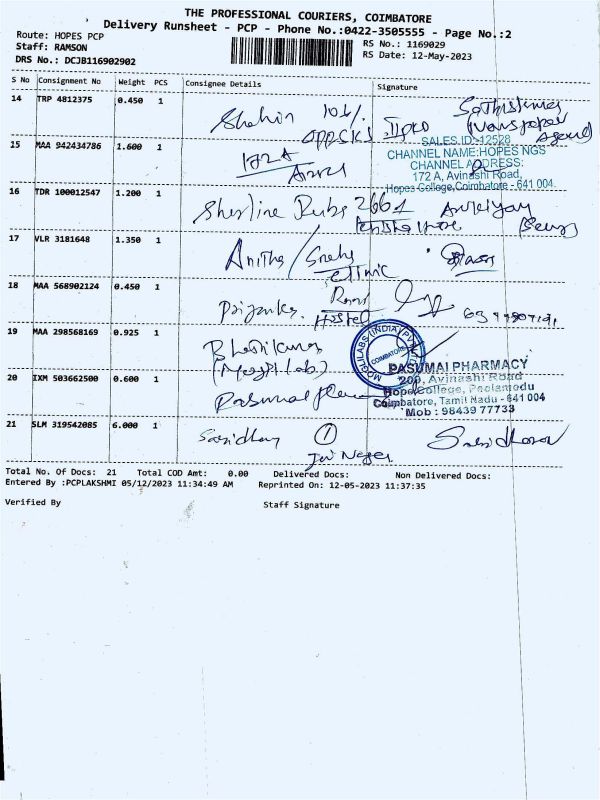 THE PROFESSIONAL COURIERS, COIMBATORE
Delivery Runsheet - PCP - Phone No.:0422-3505555 - Page No.:2
Route: HOPES PCP
Staff: RAMSON
DRS No.: DCJB116902902
RS No.: 1169029
RS Date: 12-May-2023
S No Consignment No Weight PCS Consignee Details Signature
14 TRP 4812375 0.450 1 Shahin
15 MAA 942434786 1.600 1 172 A
SALES ID:-12528
CHANNEL NAME:HOPES NGS
CHANNEL ADDRESS:
172 A, Avinashi Road,
Hopes College,Coimbatore - 641 004.
16 TDR 100012547 1.200 1 2661
17 VLR 3181648 1.350 1 Anitha / Sneha
Clinic
18 MAA 568902124 0.450 1 Priyanka.
Hostel
19 MAA 298568169 0.925 1
MOGLILABS (INDIA) PVT LTD
COIMBATORE
20 IXM 503662500 0.600 1 Pasumai
PASUMAI PHARMACY
200, Avinashi Road
HopeCollege, Peelamedu
Coimbatore, Tamil Nadu - 641 004
Mob : 98439 77733
21 SLM 319542085 6.000 1 Sasidhar 1
Total No. Of Docs: 21 Total COD Amt: 0.00 Delivered Docs: Non Delivered Docs:
Entered By :PCPLAKSHMI 05/12/2023 11:34:49 AM Reprinted On: 12-05-2023 11:37:35
Verified By Staff Signature